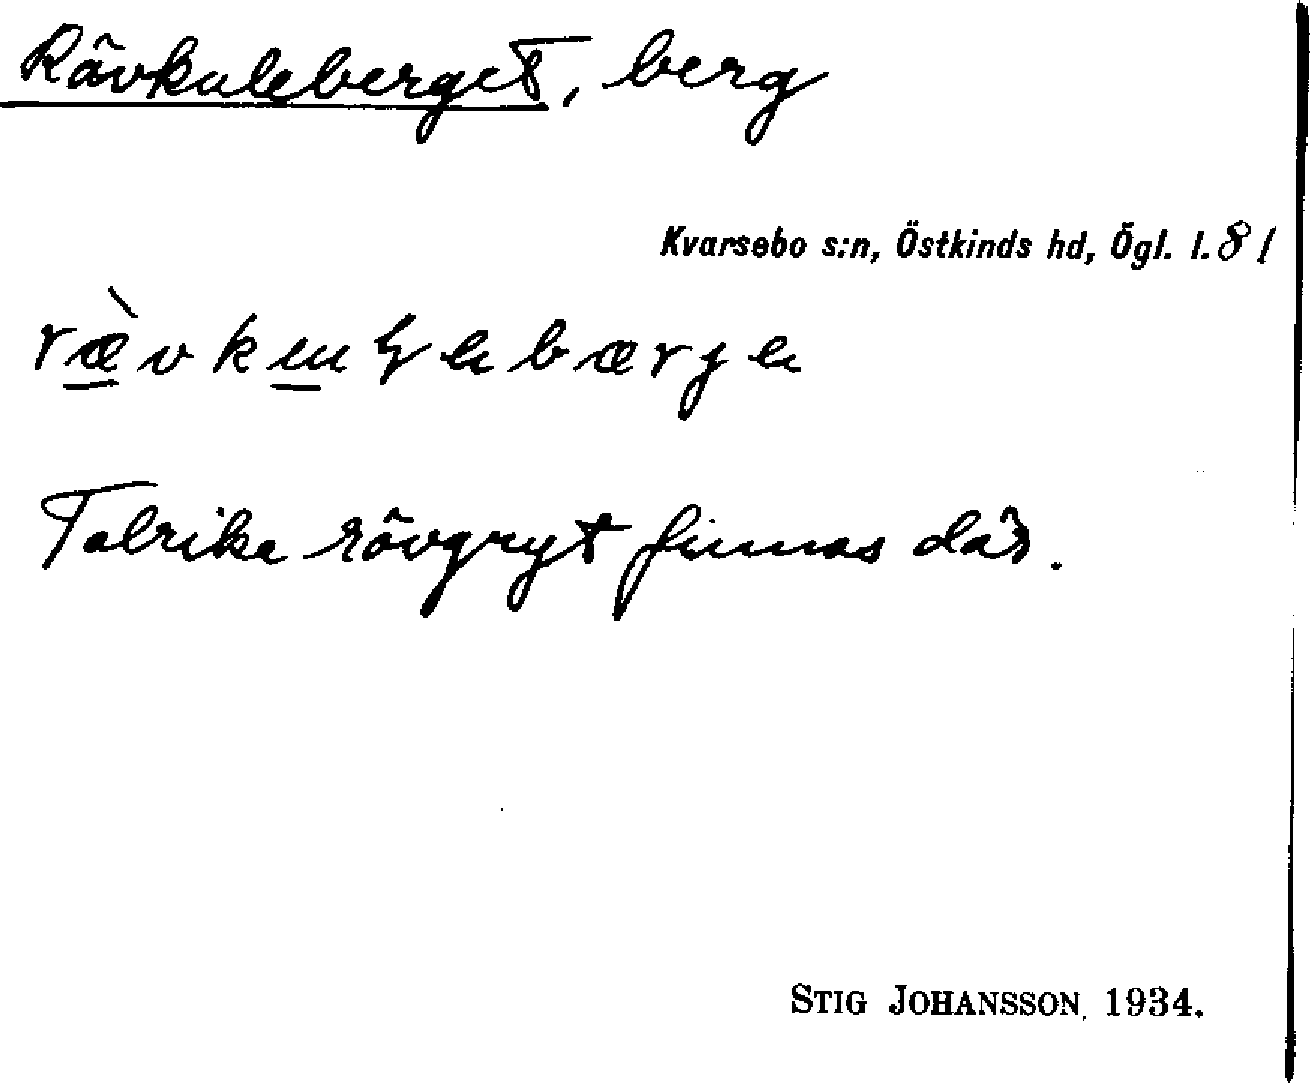 Rävkuleberget, berg
Kvarsebo s:n, Östkinds hd, Ögl. l. 81
Talrika rävgryt finnas där.
STIG JOHANSSON 1934.